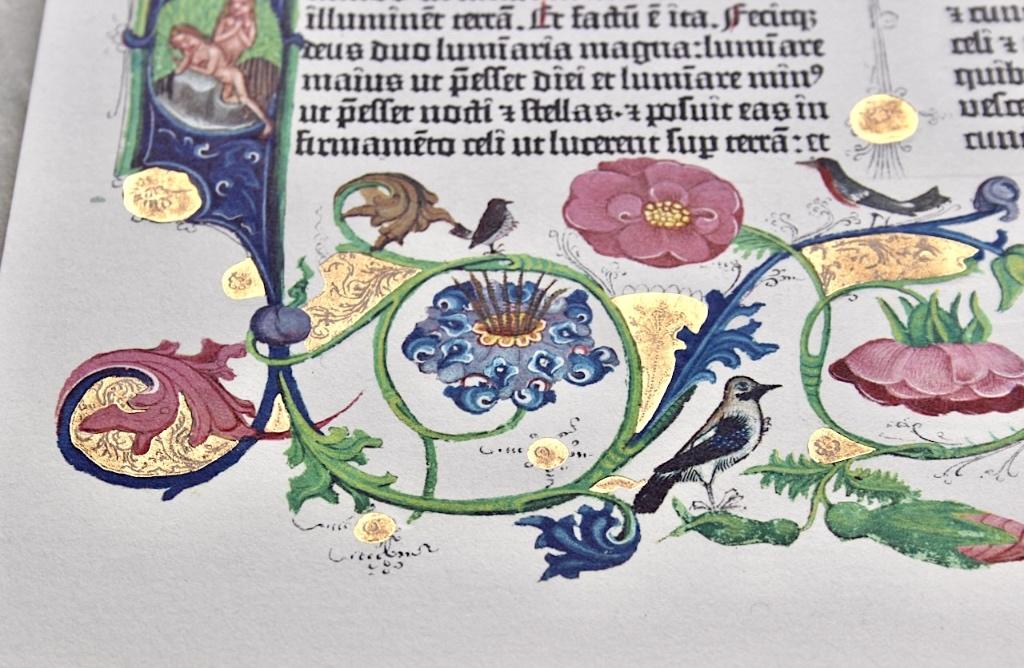 illuminēt terrā. Et factū ē ita. Fecitqȝ
deus duo lumīaria magna: lumīare
maius ut p̄esset diei et lumīare minꝰ
ut p̄esset nocti ⁊ stellas. ⁊ posuit eas in
firmamēto celi ut lucerent sup terrā: et
celi ⁊
quib
vesce